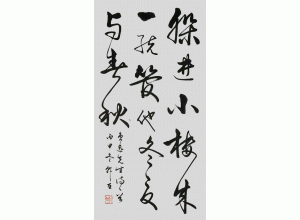 躲進小楼成
一统管他冬夏
与春秋
鲁迅先生诗
丙申冬